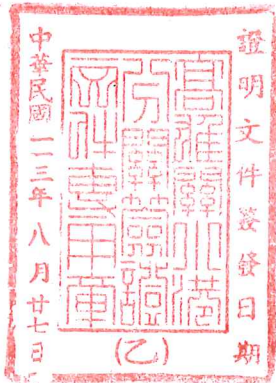 證明文件簽發日期
高雄關小港
分關簽證
文件專用章
(乙)
中華民國一一三年八月廿七日